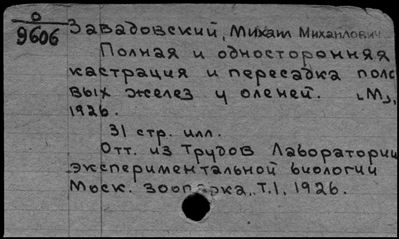 О
9606
Завадовский, Михаил Михайлович
Полная и односторонняя
кастрация и пересадка поло
вых желез у оленей. [М],
1926.
31 стр. илл.
Отт. из Трудов Лаборатории
экспериментальной биологии
Моск. зоопарка, Т.1, 1926.